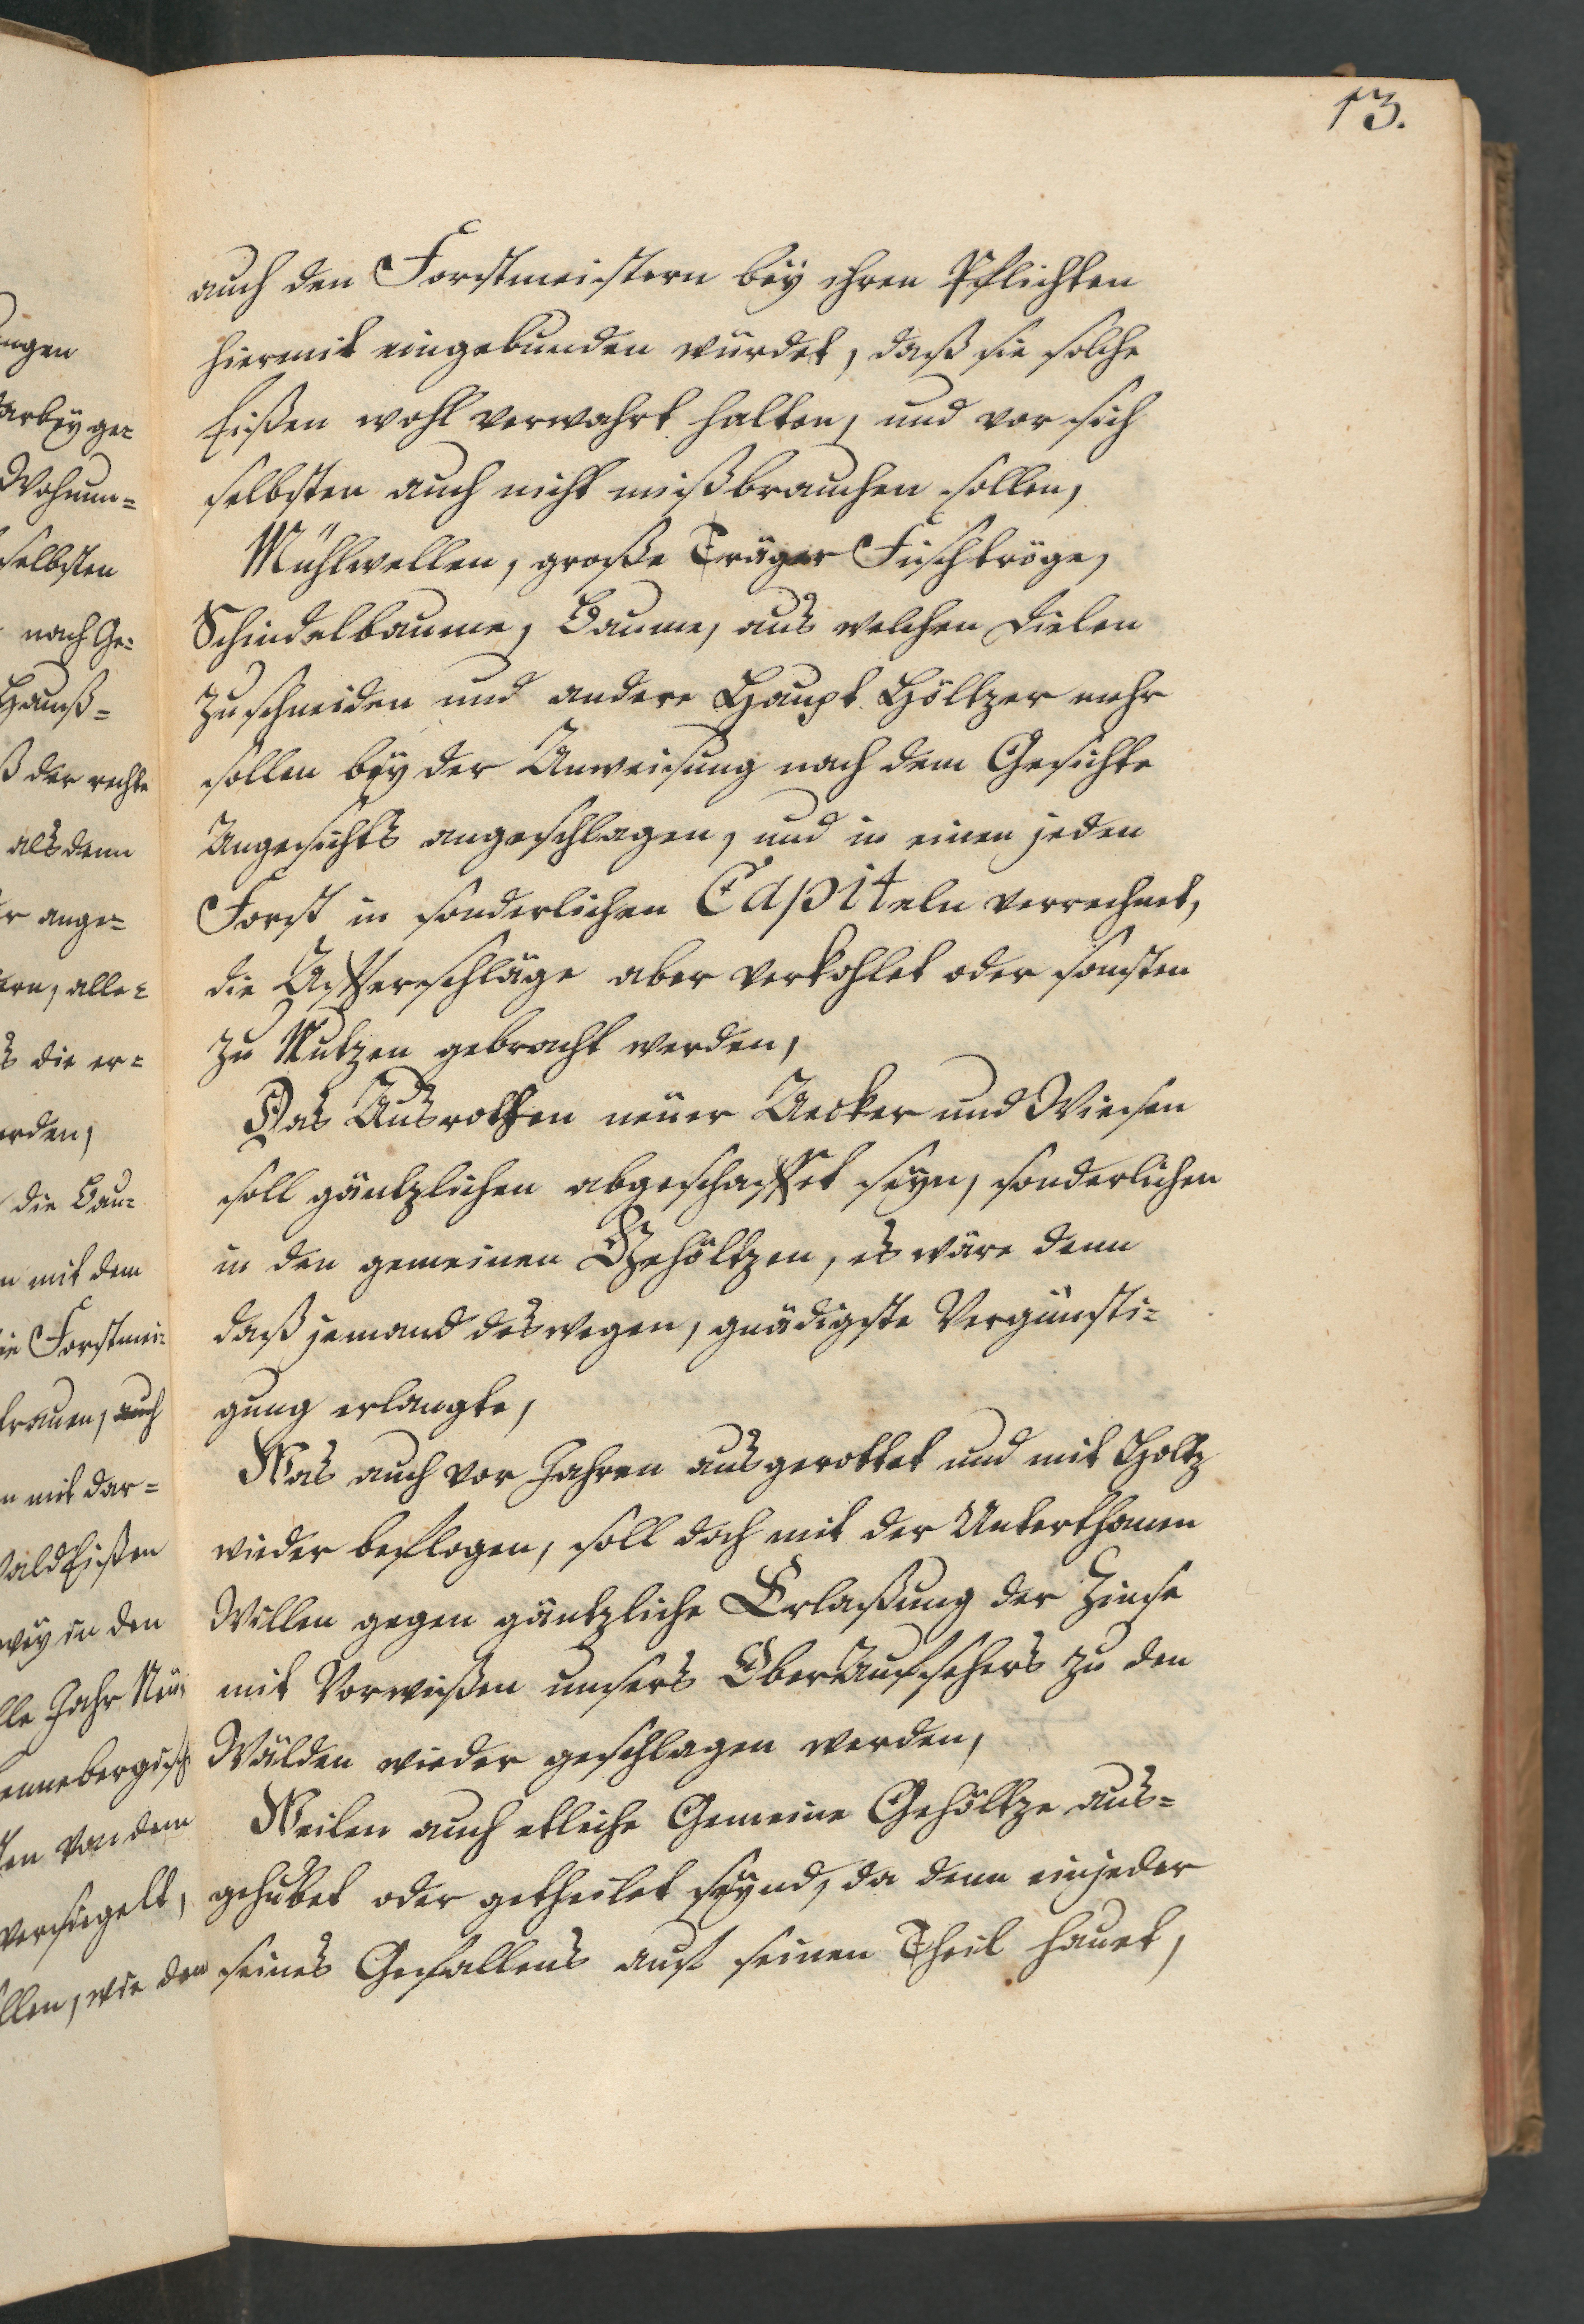 13.
auch den Forstmeistern beÿ ihren Pflichten
hiermit eingebunden würdet, daß sie solche
Eißen wohl verwahrt halten, und vor sich
selbsten auch nicht mißbrauchen sollen,
Mühlwellen, große Träger Fischtröge,
Schindelbaume, Baume, aus welchen Dielen
zuschneiden und andere Haupt Höltzer mehr
sollen beÿ der Anweisung nach dem Gesichte
Angesichts angeschlagen, und in einen jeden
Forst in sonderlichen Capiteln verrechnet,
die Affterschläge aber verkohlet oder sonsten
zu Nutzen gebracht werden,
Das Ausrotten neüer Aecker und Wiesen
soll gäntzlichen abgeschaffet seyn, sonderlichen
in den gemeinen Gehöltzen, es wäre denn
daß jemand deswegen, gnädigste Vergünsti=
gung erlangte,
Was auch vor Jahren ausgerottet und mit Holtz
wieder beflogen, soll doch mit der Unterthanen
Willen gegen gäntzliche Erlaßung der Zinse
mit Vorwißen unsers OberAufsehers zu den
Wälden wieder geschlagen werden,
Weilen auch etliche Gemeine Gehöltze aus=
gehubet oder getheilet seÿnd, da denn einjeder
seines Gefallens auf seinen Theil hauet,
ngen
arbeÿ ge=
Wohnun=
selbsten
nach Ge=
Hauß=
ß der rechte
als denn
r ange=
ern, alle=
s die er=
erden,
die Bau=
n mit dem
ie Forstmei=
trauen, auch
n mit dar=
Wald Eißen
weÿ in den
lle Jahr Neü
ennebergisch
en von dem
versiegelt,
llen, wie den